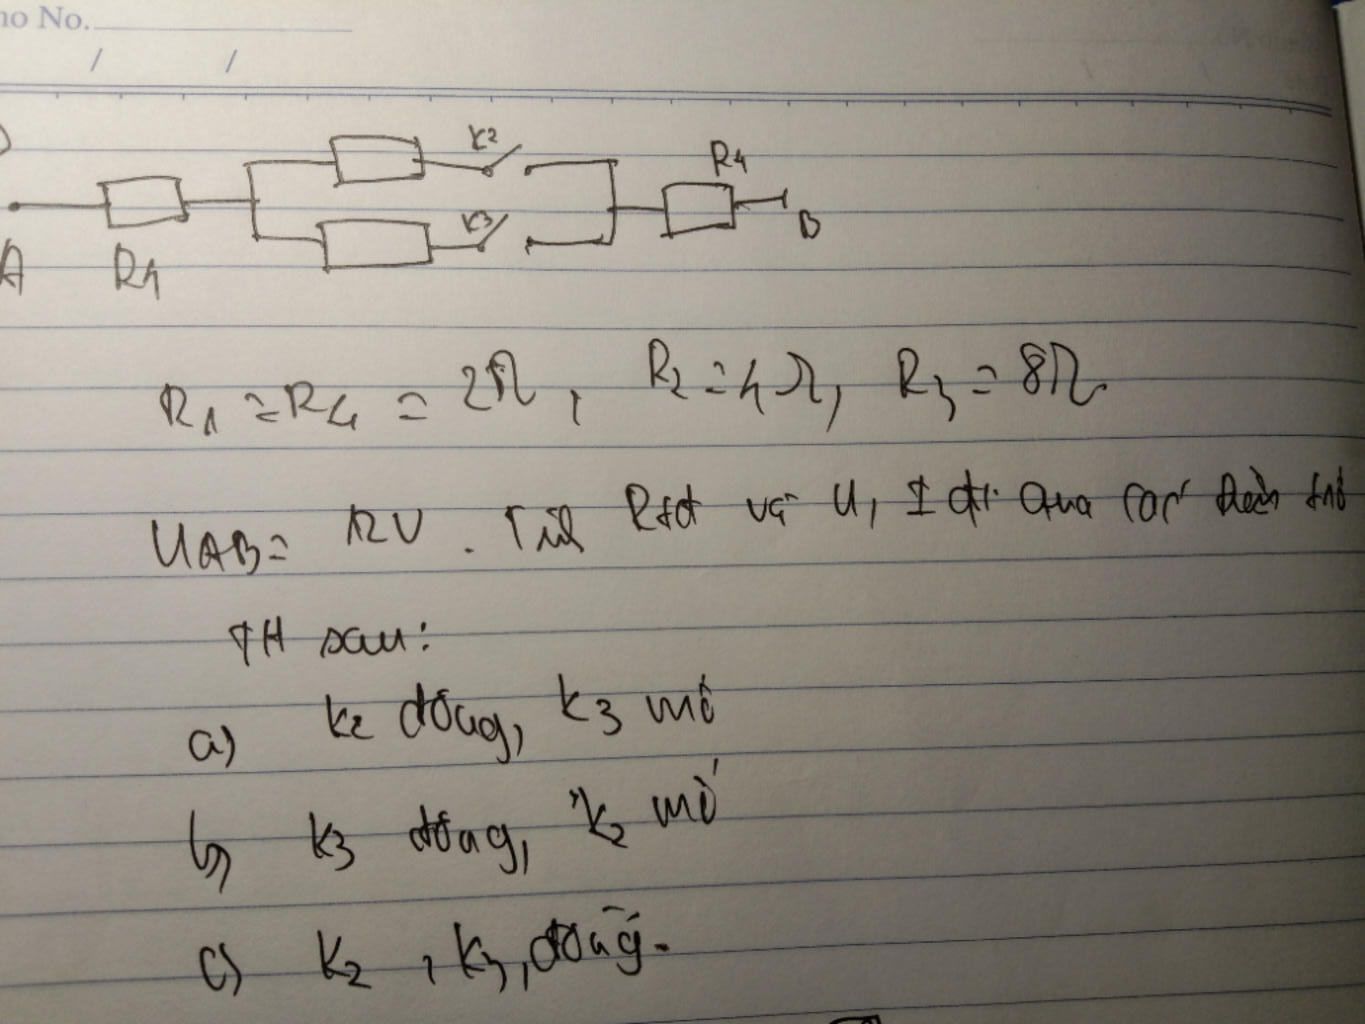 no No.
/ /
K2
R4
K3
A R1 B
R1 = R4 = 2Ω, R2 = 4Ω, R3 = 8Ω
UAB = 12V. Tính Rtđ và U, I đi qua các
TH sau:
a) K2 đóng, K3 mở
b) K3 đóng, K2 mở
c) K2, K3, đóng.